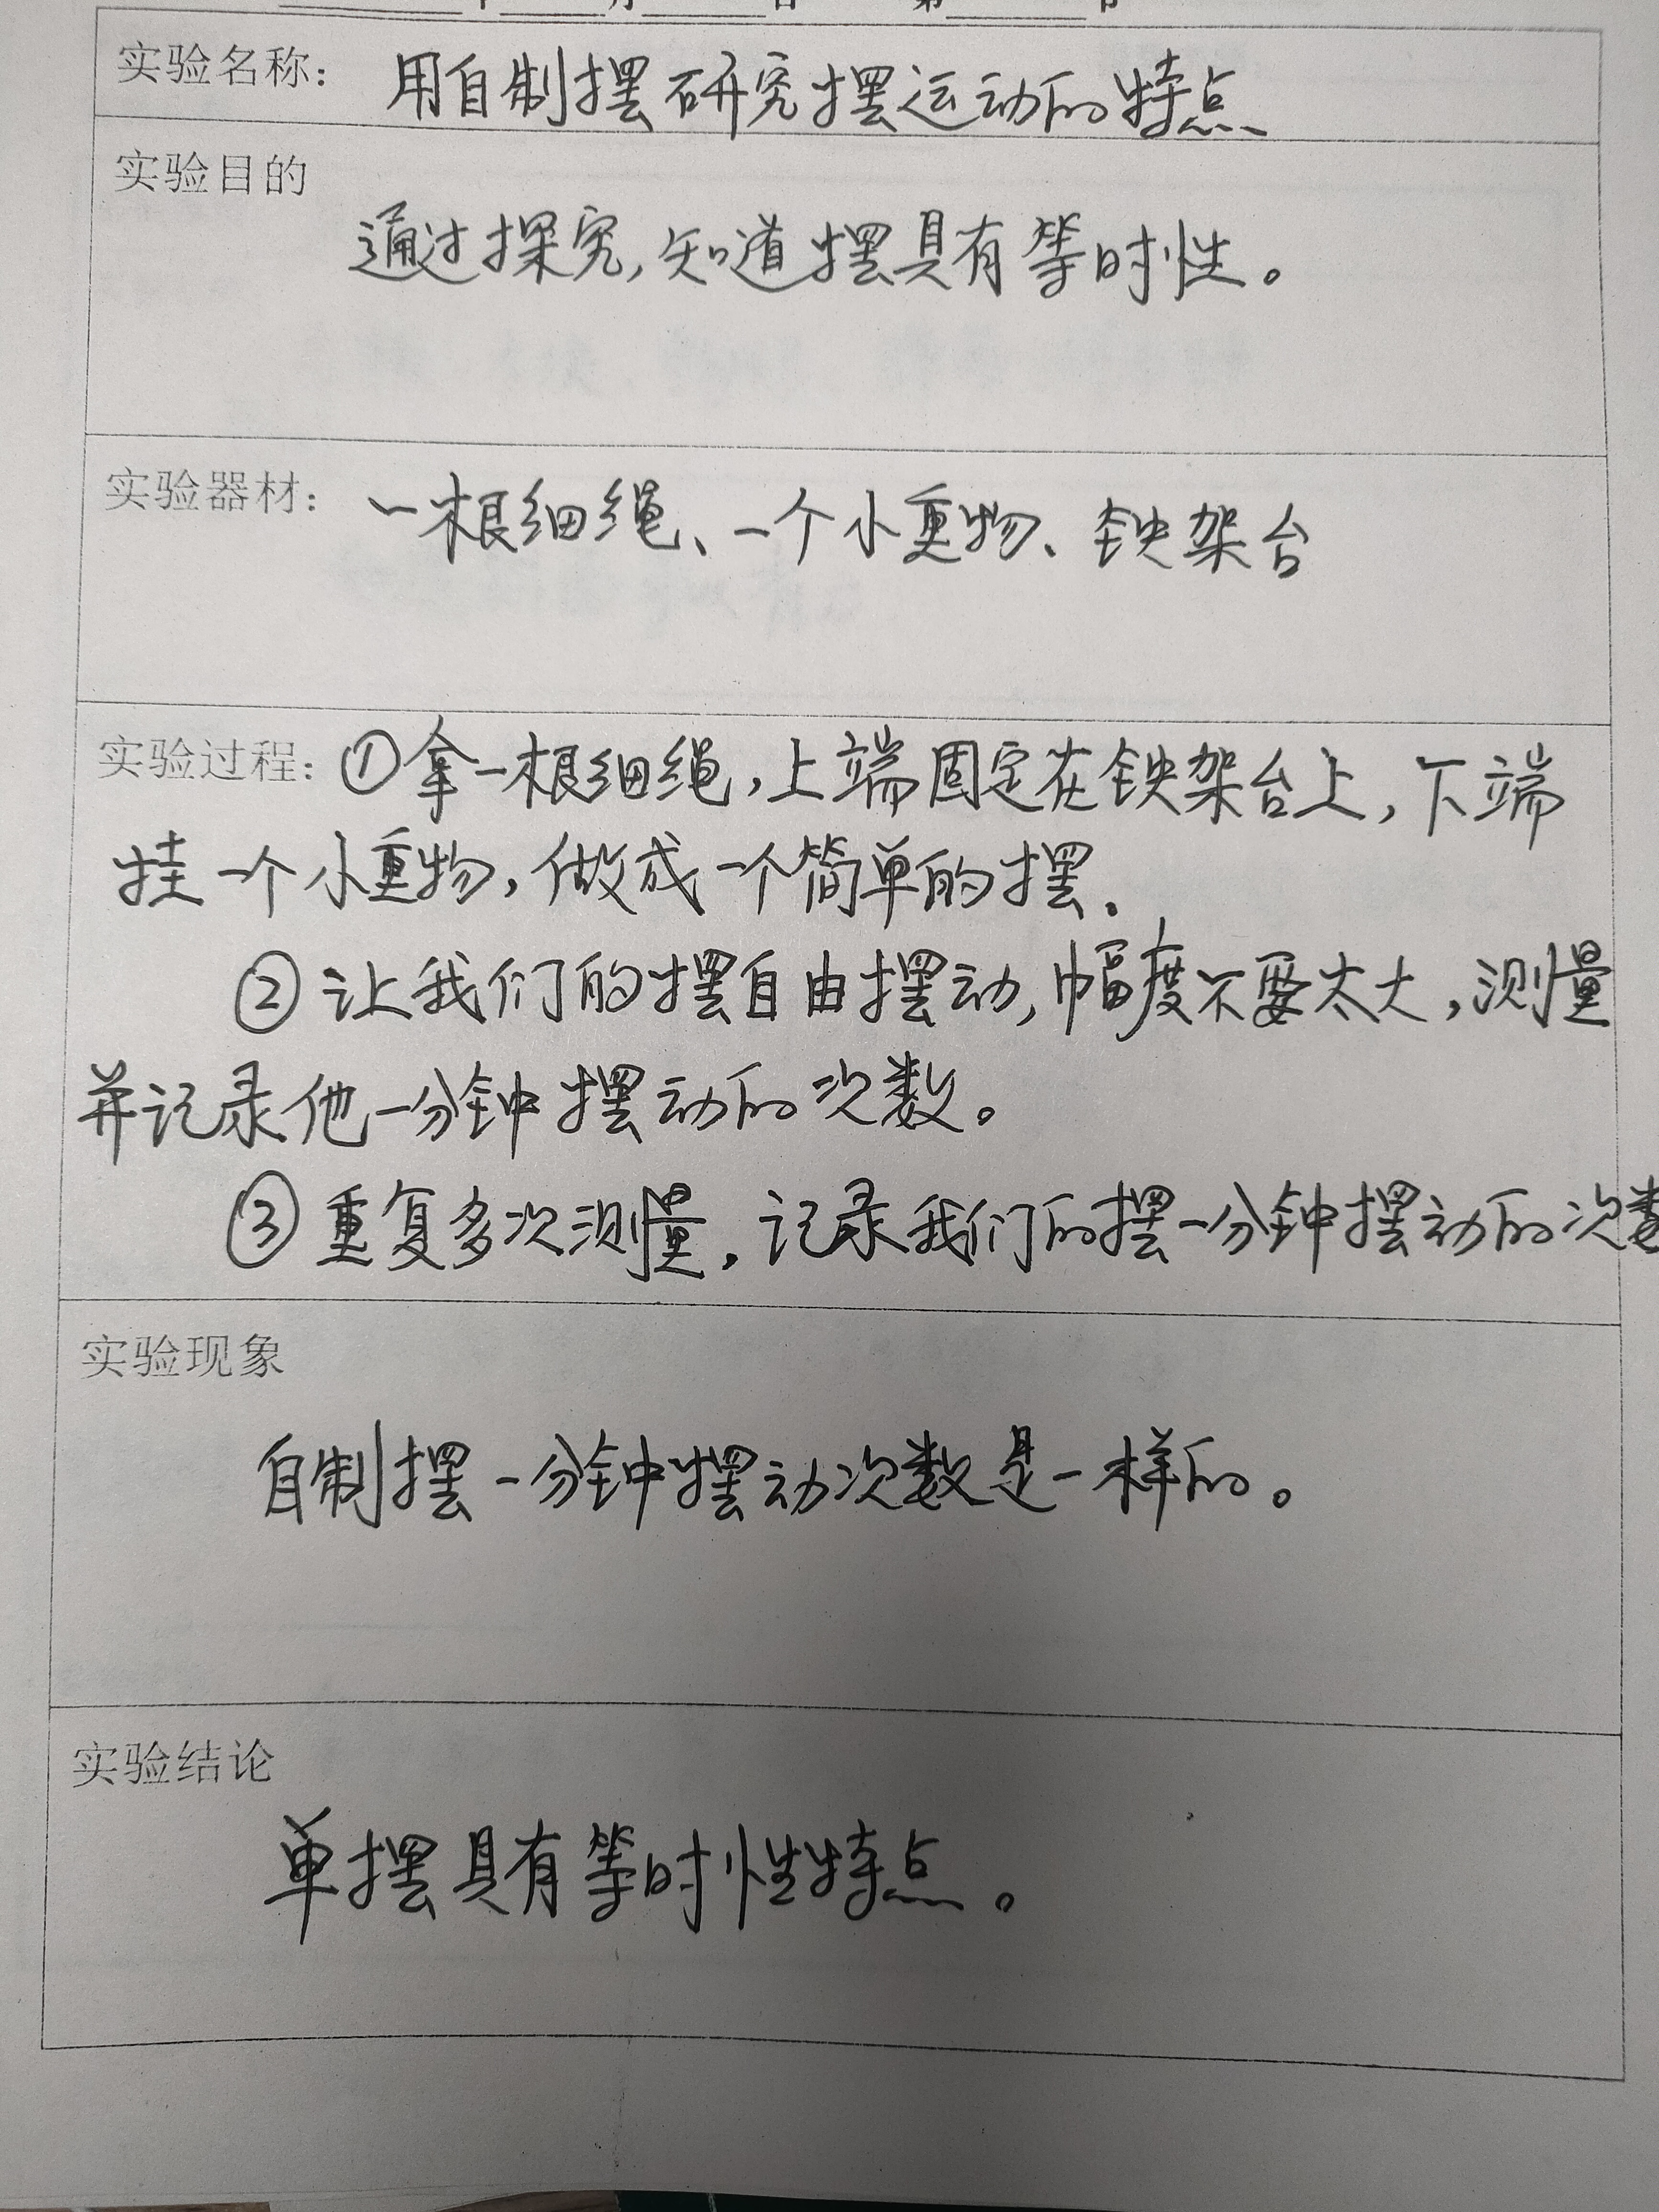 实验名称： 用自制摆研究摆运动的特点
实验目的
通过探究,知道摆具有等时性。
实验器材： 一根细绳、一个小重物、铁架台
实验过程：①拿一根细绳,上端固定在铁架台上,下端
挂一个小重物,做成一个简单的摆.
②让我们的摆自由摆动,幅度不要太大,测量
并记录他一分钟摆动的次数。
③重复多次测量,记录我们的摆一分钟摆动的次数
实验现象
自制摆一分钟摆动次数是一样的。
实验结论
单摆具有等时性特点。